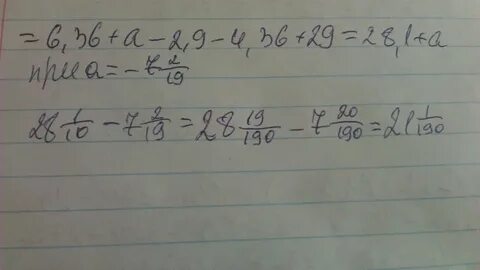 = 6,36 + a - 2,9 - 4,36 + 29 = 28,1 + a
при a = - 7 2/19
28 1/10 - 7 2/19 = 28 19/190 - 7 20/190 = 21 1/190